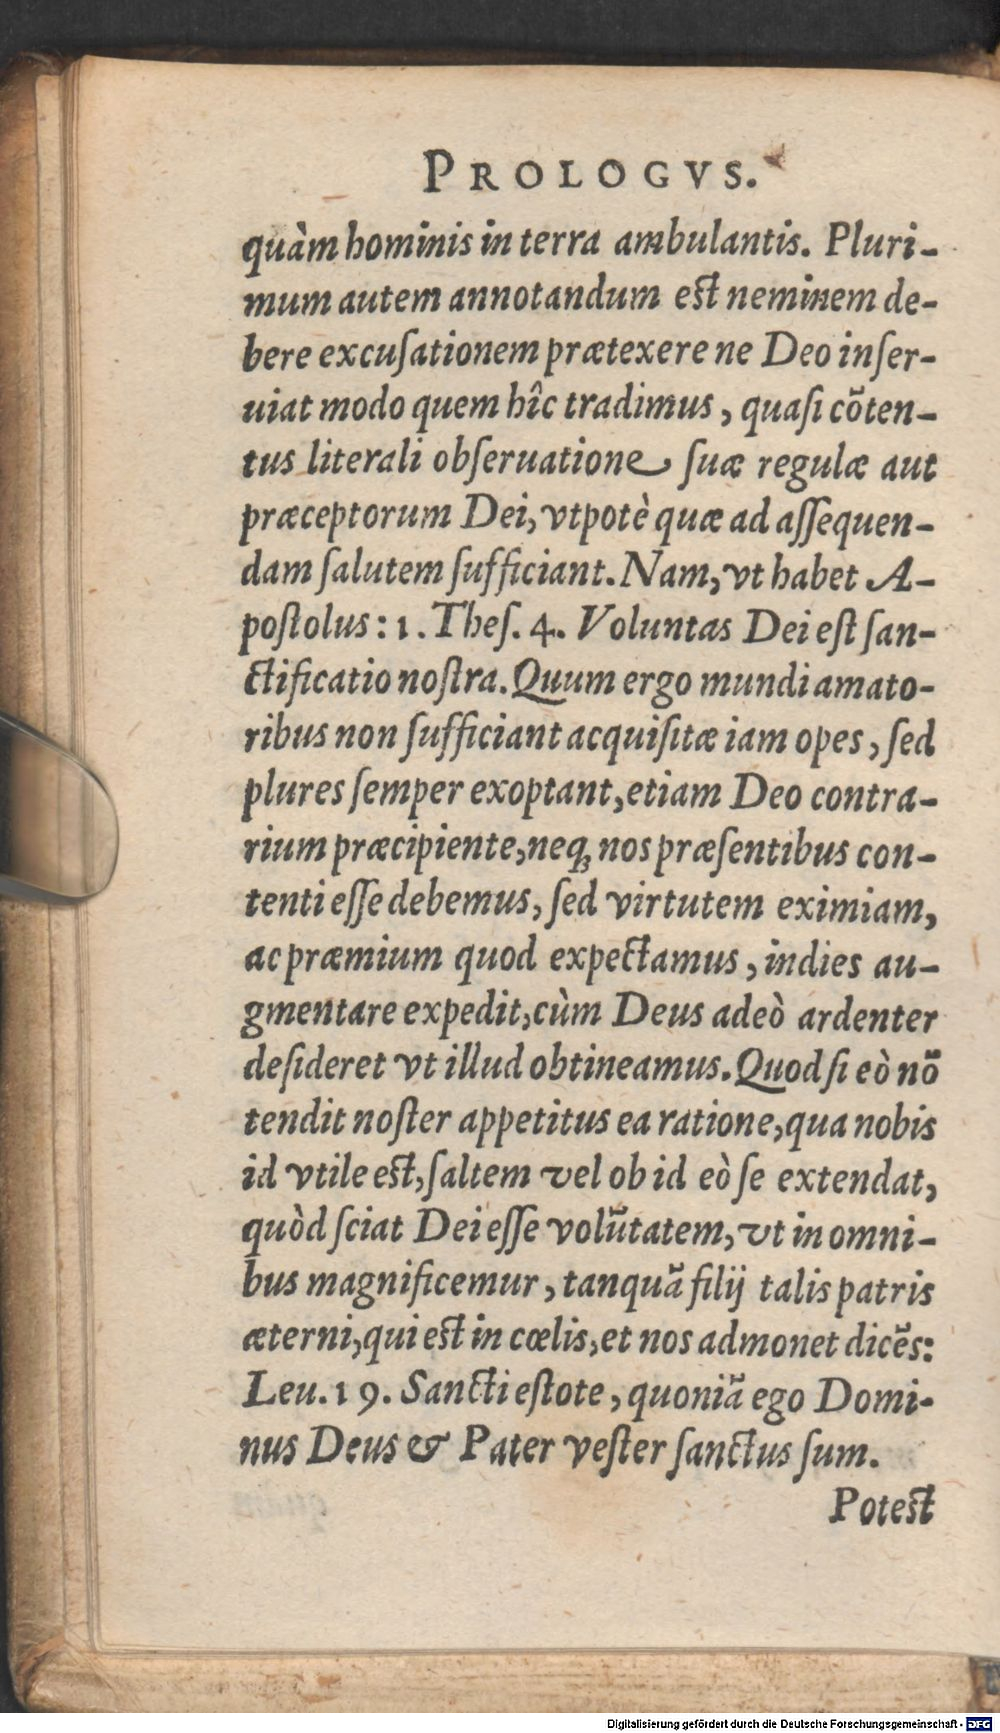 PROLOGVS.
quàm hominis in terra ambulantis. Pluri-
mum autem annotandum est neminem de-
bere excuſationem prætexere ne Deo inſer-
uiat modo quem hîc tradimus, quaſi cõten-
tus literali obſeruatione ſuæ regulæ aut
præceptorum Dei, vtpotè quæ ad aſſequen-
dam ſalutem ſufficiant. Nam, vt habet A-
poſtolus: 1. Theſ. 4. Voluntas Dei eſt ſan-
ctificatio noſtra. Quum ergo mundi amato-
ribus non ſufficiant acquiſitæ iam opes, ſed
plures ſemper exoptant, etiam Deo contra-
rium præcipiente, neq; nos præſentibus con-
tenti eſſe debemus, ſed virtutem eximiam,
ac præmium quod expectamus, indies au-
gmentare expedit, cùm Deus adeò ardenter
deſideret vt illud obtineamus. Quod ſi eò nõ
tendit noſter appetitus ea ratione, qua nobis
id vtile est, ſaltem vel ob id eò ſe extendat,
quòd ſciat Dei eſſe volũtatem, vt in omni-
bus magnificemur, tanquã filij talis patris
æterni, qui est in cœlis, et nos admonet dicẽs:
Leu. 19. Sancti eſtote, quoniã ego Domi-
nus Deus & Pater veſter ſanctus ſum.
Potest
Digitalisierung gefördert durch die Deutsche Forschungsgemeinschaft - DFG